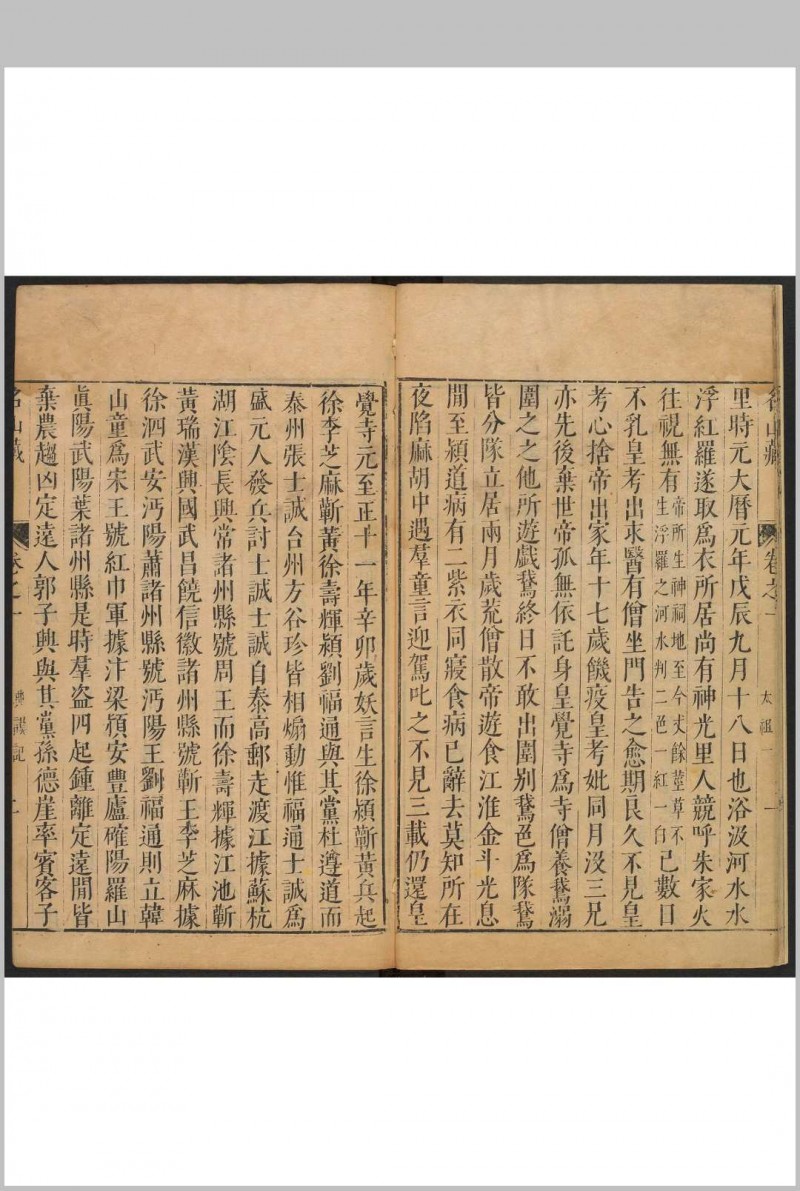 名山藏 卷之一 太祖一
里時元大曆元年戊辰九月十八日也浴汲河水水
浮紅羅遂取爲衣所居尚有神光里人競呼朱家火
往視無有帝所生神祠地至今丈餘塋草不生浮羅之河水判二色一紅一白已數日
不乳皇考出求醫有僧坐門告之愈期良久不見皇
考心捨帝出家年十七歲饑疫皇考妣同月沒三兄
亦先後棄世帝孤無依託身皇覺寺爲寺僧養鵞溺
圍之之他所遊戲鵞終日不敢出圍别鵞色爲隊鵞
皆分隊立居兩月歲荒僧散帝遊食江淮金斗光息
閒至潁道病有二紫衣同寢食病已辭去莫知所在
夜陷麻胡中遇羣童言迎駕叱之不見三載仍還皇
覺寺元至正十一年辛卯歲妖言生徐潁蘄黃兵起
徐李芝麻蘄黃徐壽輝潁劉福通與其黨杜遵道而
泰州張士誠台州方谷珍皆相煽動惟福通士誠爲
盛元人發兵討士誠士誠自泰高郵走渡江據蘇杭
湖江陰長興常諸州縣號周王而徐壽輝據江池蘄
黃瑞漢興國武昌饒信徽諸州縣號蘄王李芝麻據
徐泗武安沔陽蕭諸州縣號沔陽王劉福通則立韓
山童爲宋王號紅巾軍據汴梁潁安豐廬確陽羅山
眞陽武陽葉諸州縣是時羣盗四起鍾離定遠閒皆
棄農趨凶定遠人郭子興與其黨孫德崖率賓客子
名山藏 卷之一 典謨記 二